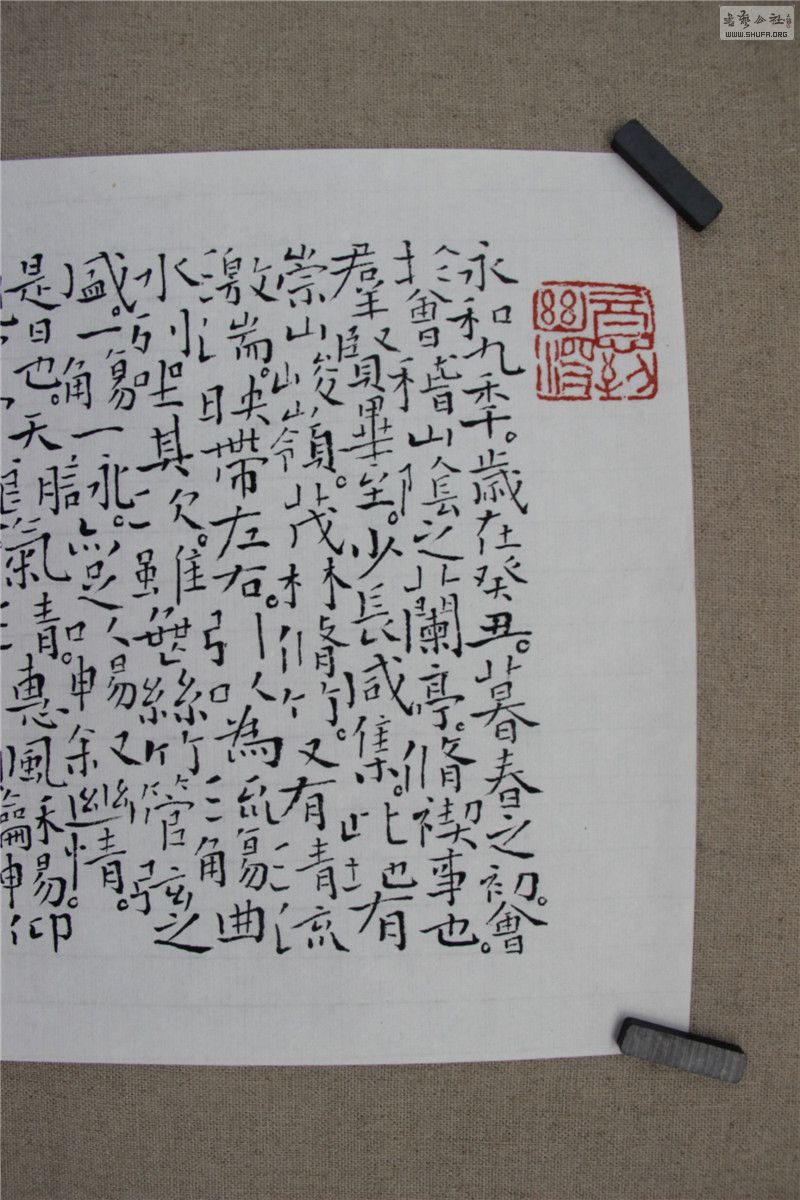 永和九秊。歲在癸丑。暮春之初。會
於會稽山陰之蘭亭。脩禊事也。
羣賢畢至。少長咸集。此地有
崇山峻嶺。茂林脩竹。又有清流
激湍。映帶左右。引以為流觴曲
水列坐其次。雖無絲竹管弦之
盛。一觴一詠。亦足以暢敘幽情。
是日也。天朗氣清。惠風和暢。仰
書藝公社
WWW.SHUFA.ORG